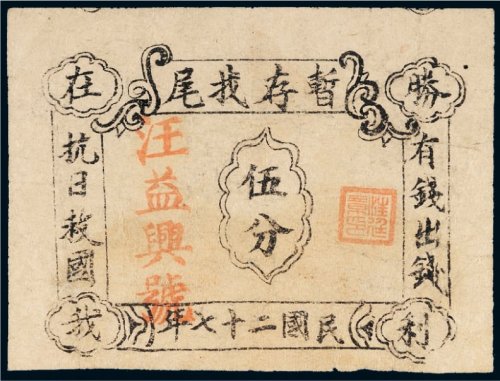 暫存找尾
勝利
在我
有錢出錢
抗日救國
伍分
汪益興號
民國二十七年